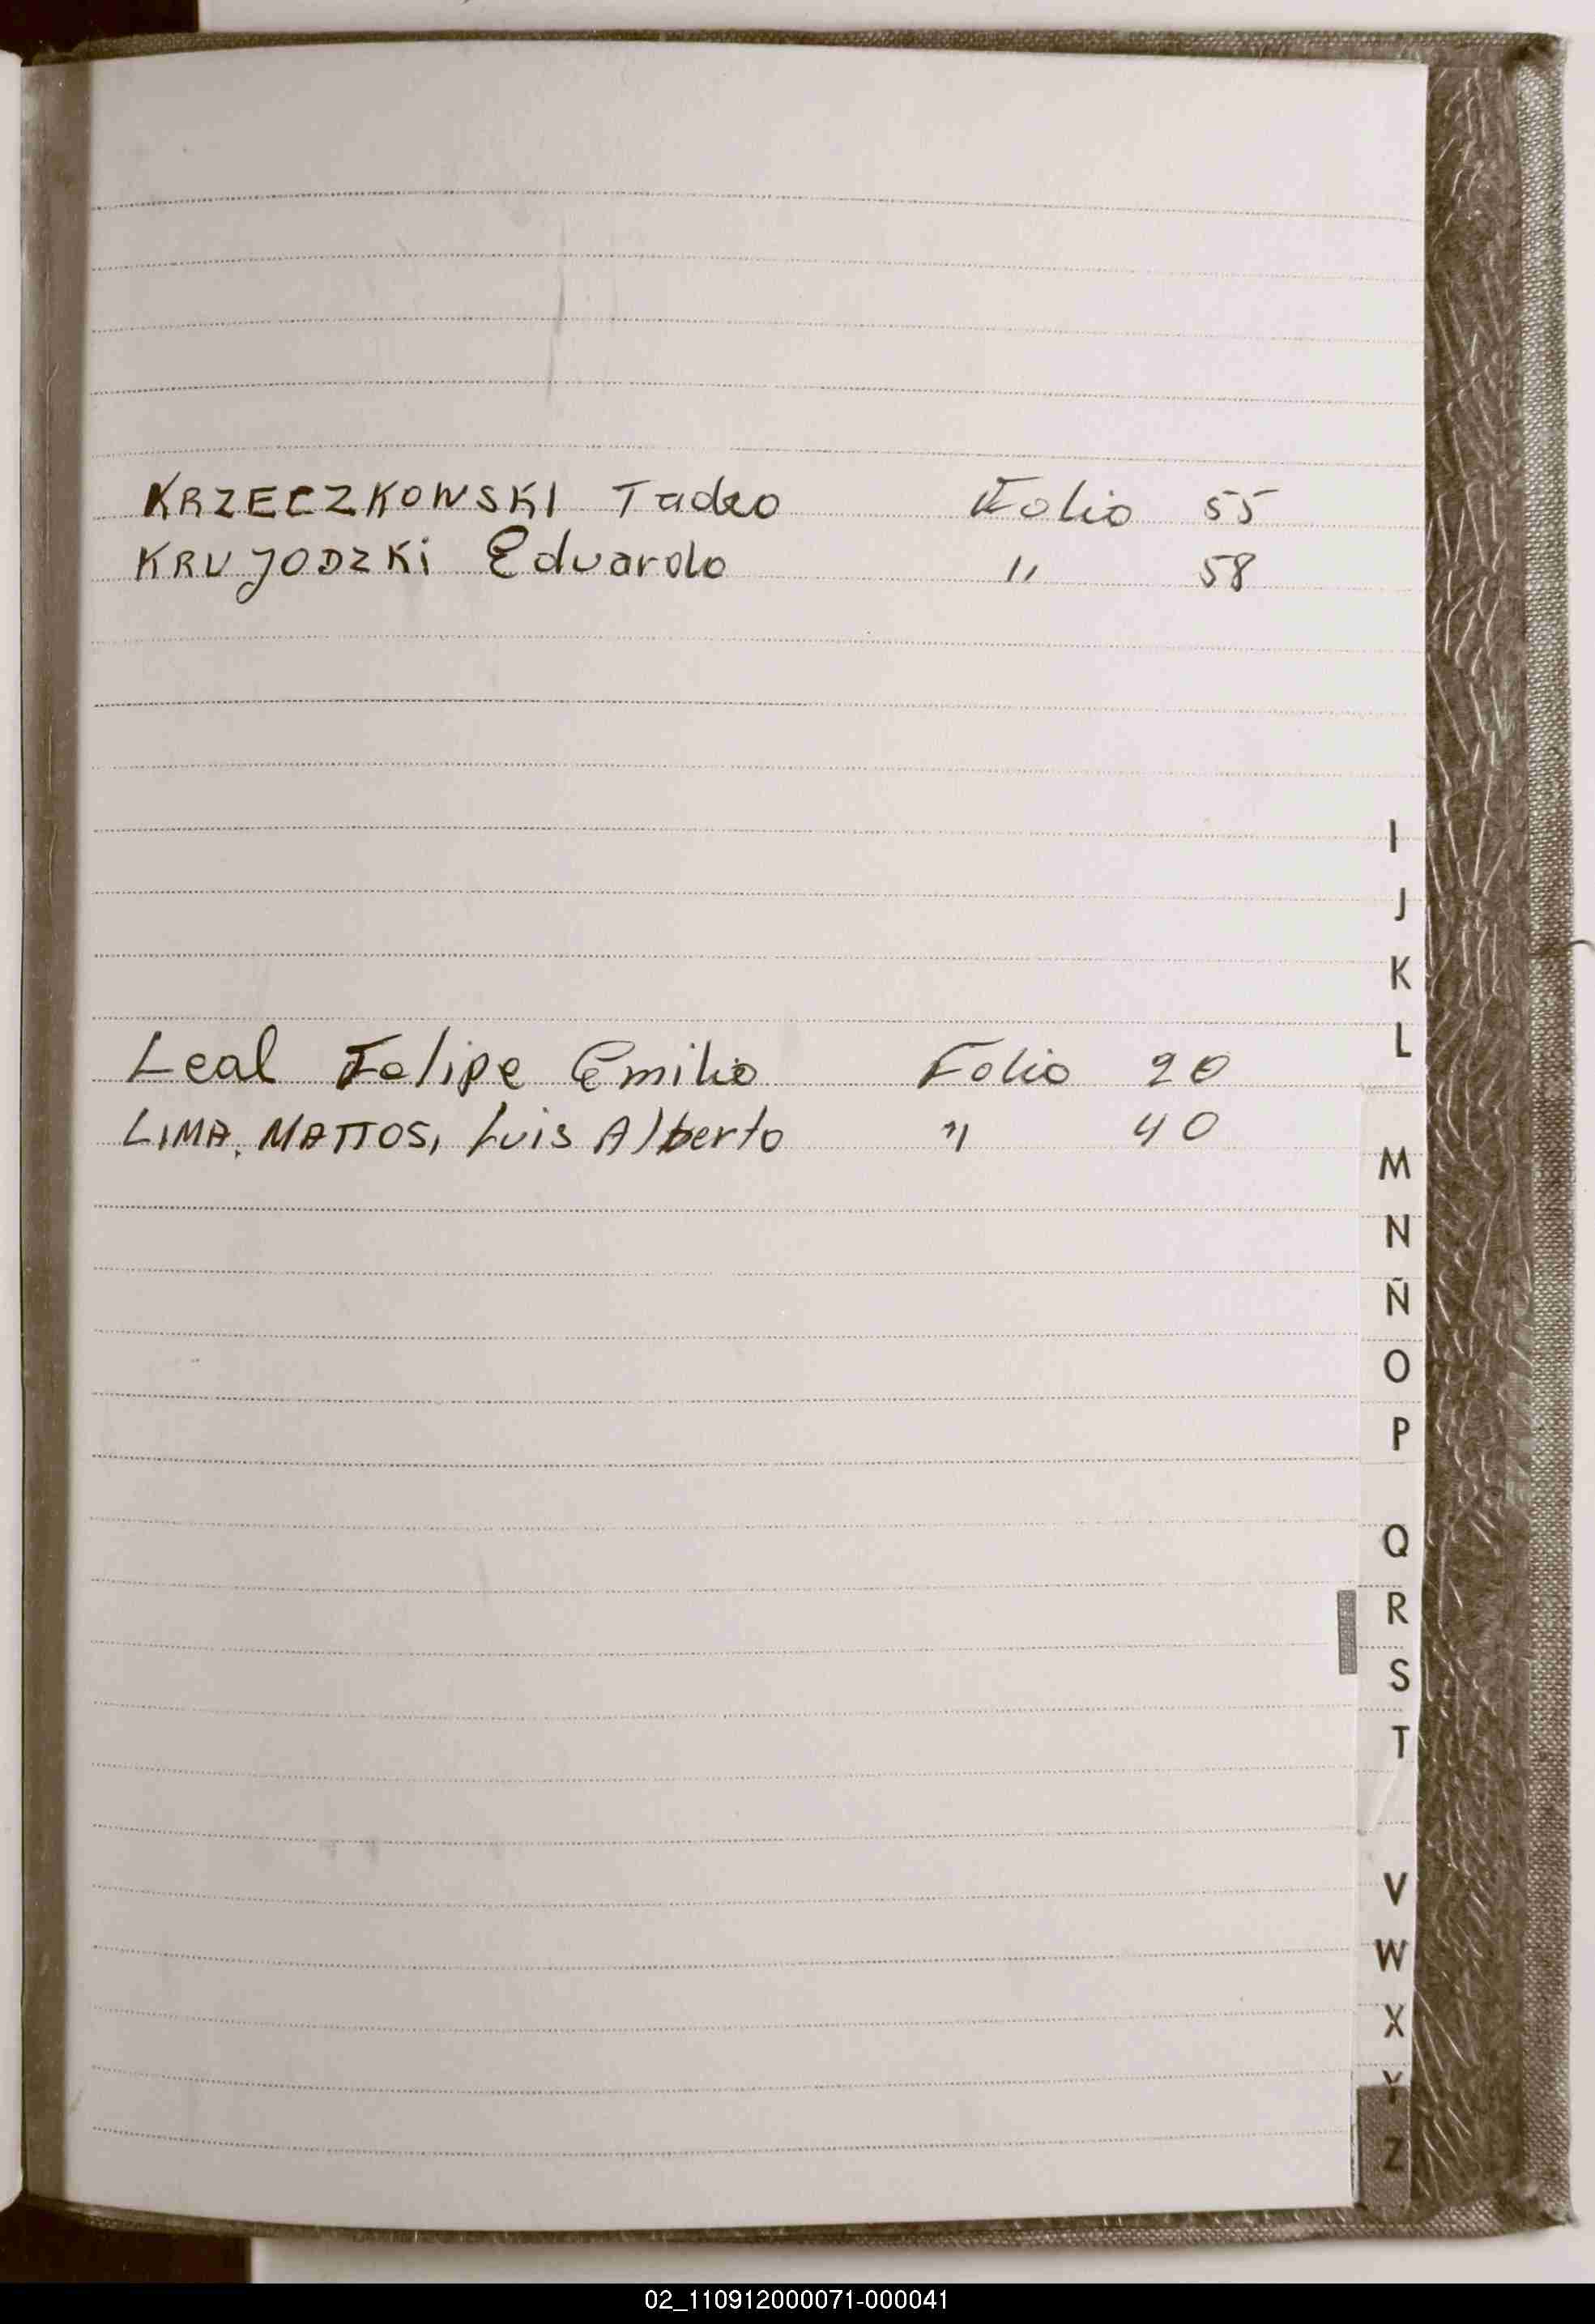 KRZECZKOWSKI Tadeo Folio 55
KRUJODZKi Eduardo " 58
I
J
K
L
Leal Felipe Emilio Folio 20
LIMA, MATTOS, Luis Alberto " 40
M
N
Ñ
O
P
Q
R
S
T
V
W
X
Y
Z
02_110912000071-000041